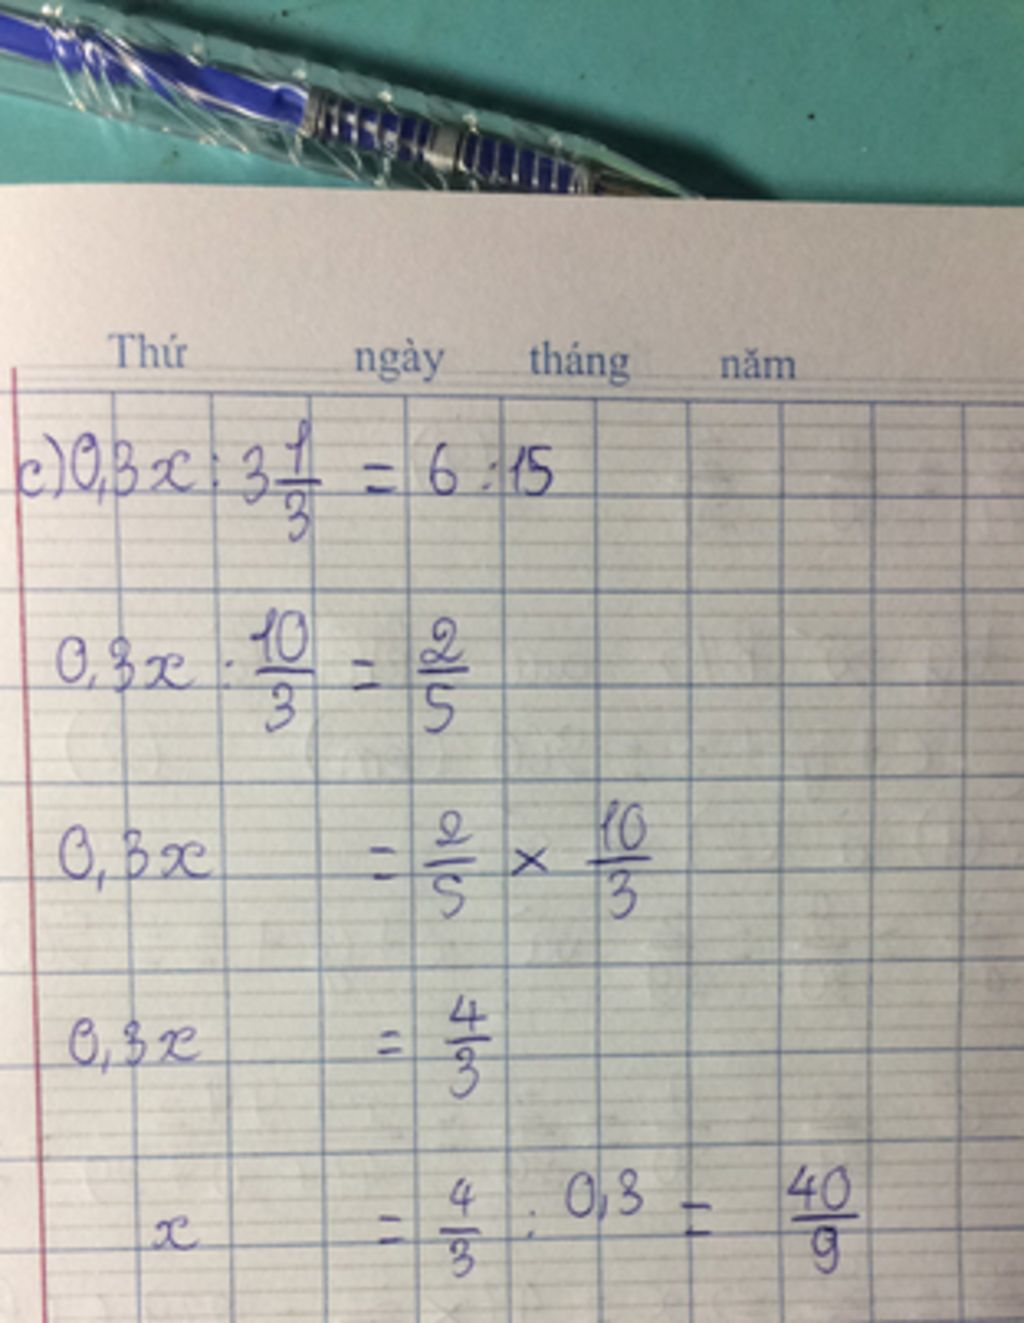 Thứ ngày tháng năm
c) 0,3x : 3 1/3 = 6 : 15
0,3x : 10/3 = 2/5
0,3x = 2/5 × 10/3
0,3x = 4/3
x = 4/3 : 0,3 = 40/9